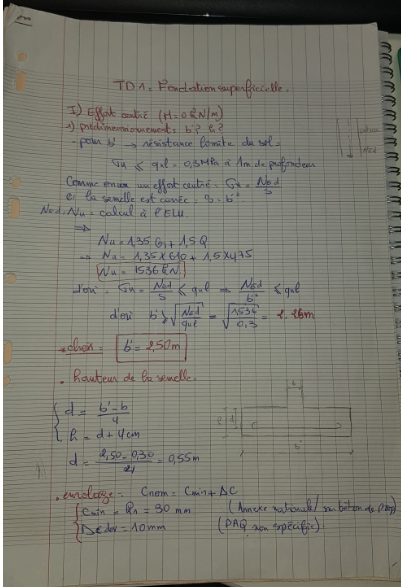 TD1 = Fondation superficielle.
I) Effort centré (M = 0 kN/m)
1) prédimensionnement = b'? h?
- pour b' → résistance limite du sol =
σu ≤ qul = 0,3 MPa à 1m de profondeur
Comme on a un effort centré = σu = NEd/S
et la semelle est carrée = S = b'²
NEd, Nu = calcul à l'ELU.
⇒
Nu = 1,35 G + 1,5 Q
→ Nu = 1,35 x 610 + 1,5 x 475
Nu = 1536 kN
d'où = σu = NEd/S ≤ qul ⇒ NEd/b'² ≤ qul
d'où b' ≥ √NEd/qul = √1,536/0,3 = 2,26m
choix = b' = 2,50m
• hauteur de la semelle.
d = b' - b/4
h = d + 4cm
d = 2,50 - 0,30/4 = 0,55m
• enrobage = Cnom = Cmin + ΔC
Cmin = = 30 mm (Annexe nationale
ΔCdev = 10mm (PAQ non spécifié)
b
b'